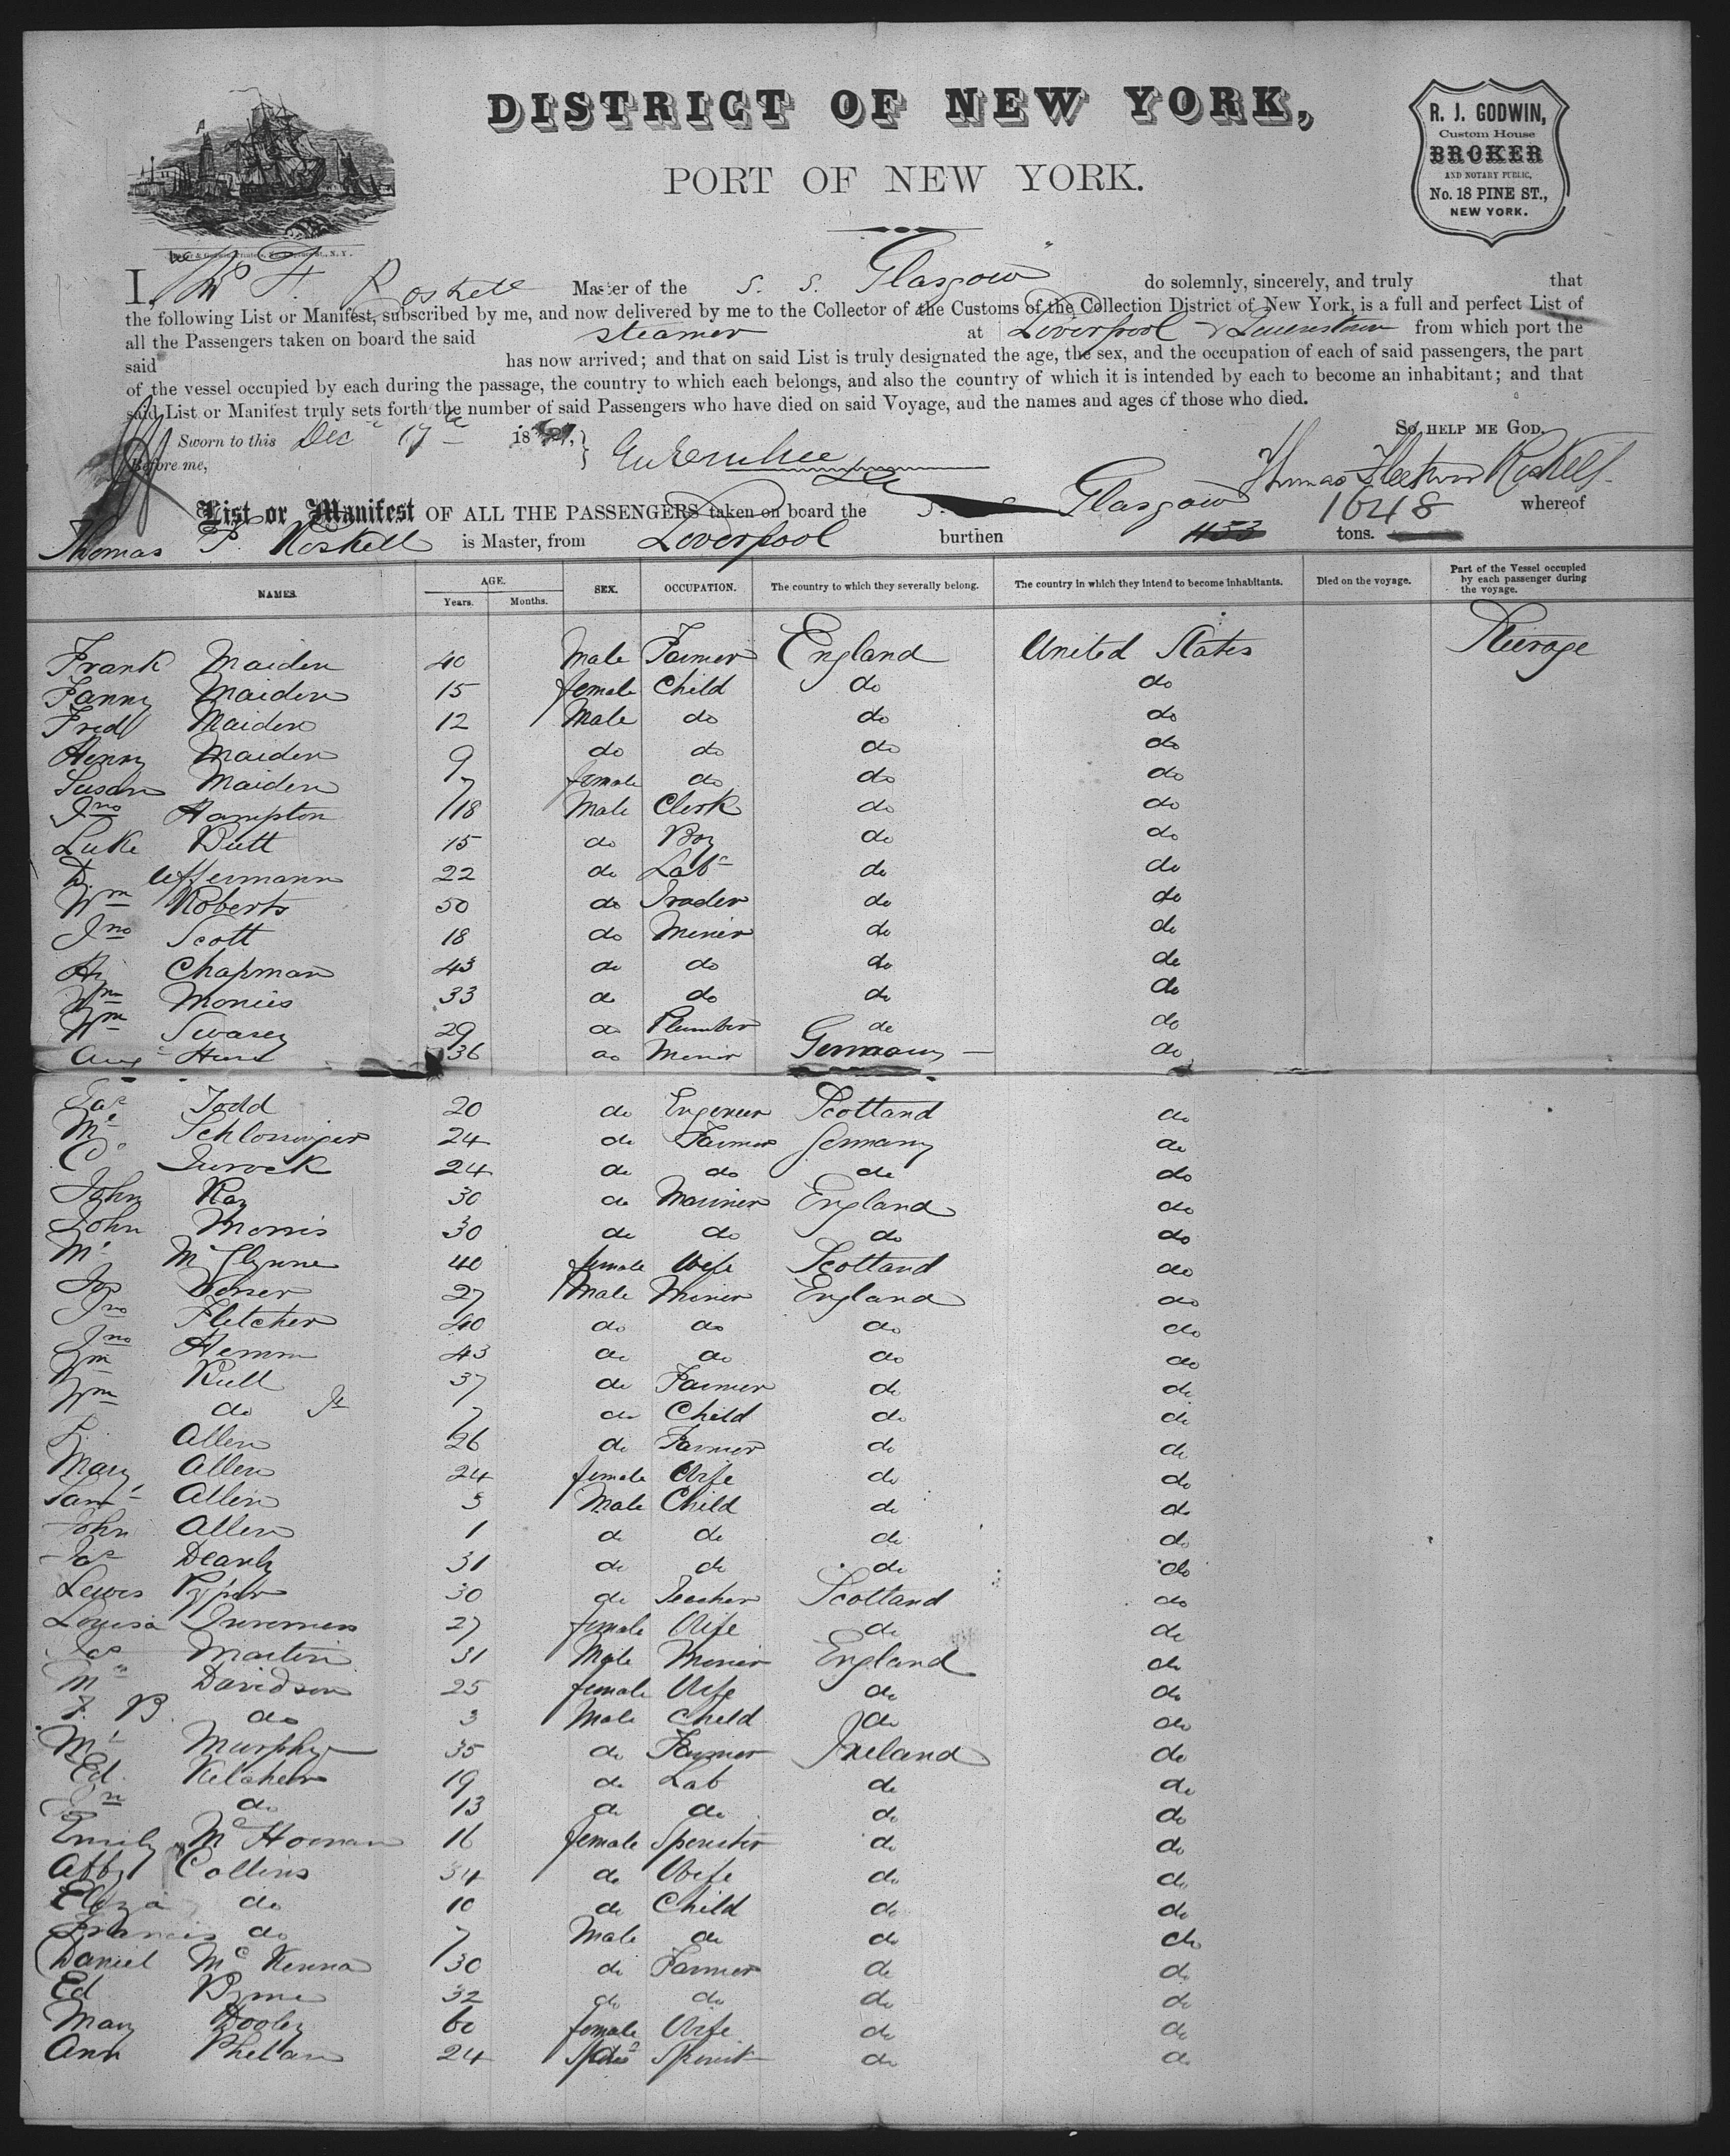 DISTRICT OF NEW YORK,
PORT OF NEW YORK.
R. J. GODWIN,
Custom House
BROKER
AND NOTARY PUBLIC,
No. 18 PINE ST.,
NEW YORK.
I, Roskell Master of the S. S. Glasgow do solemnly, sincerely, and truly that
the following List or Manifest, subscribed by me, and now delivered by me to the Collector of the Customs of the Collection District of New York, is a full and perfect List of
all the Passengers taken on board the said steamer at Liverpool & Queenstown from which port the
said has now arrived; and that on said List is truly designated the age, the sex, and the occupation of each of said passengers, the part
of the vessel occupied by each during the passage, the country to which each belongs, and also the country of which it is intended by each to become an inhabitant; and that
said List or Manifest truly sets forth the number of said Passengers who have died on said Voyage, and the names and ages of those who died.
Sworn to this Dec 17 18 SO HELP ME GOD.
Before me, Thomas Roskell
List or Manifest OF ALL THE PASSENGERS taken on board the S. Glasgow 1648 whereof
Thomas F. Roskell is Master, from Liverpool burthen tons.
NAMES. AGE. Years. Months. SEX. OCCUPATION. The country to which they severally belong. The country in which they intend to become inhabitants. Died on the voyage. Part of the Vessel occupied by each passenger during the voyage.
Frank Maiden 40 Male Farmer England United States Steerage
Fanny Maiden 15 female Child do do
Fred Maiden 12 Male do do do
Henry Maiden 9 do do do do
Susan Maiden 7 female do do do
Jno Hampton 18 Male Clerk do do
Luke Butt 15 do Boy do do
22 do Labr do do
Wm Roberts 50 do Trader do do
Jno Scott 18 do Miner do do
Chapman 43 do do do do
Wm Monies 33 do do do do
Wm Swasey 29 do Plumber do do
Aug 36 do Miner Germany do
Jas Todd 20 do Engeneer Scotland do
24 do Farmer Germany do
C 24 do do do do
John Ray 30 do Mariner England do
John Morris 30 do do do do
McGlynne 40 female Wife Scotland do
27 Male Miner England do
Jno Fletcher 40 do do do do
Jno Hemm 43 do do do do
Wm Rull 37 do Farmer do do
Wm do Jr 7 do Child do do
Allen 26 do Farmer do do
Mary Allen 24 female Wife do do
Saml Allen 3 Male Child do do
John Allen 1 do do do do
Jas 31 do do do do
Lewis 30 do Teacher Scotland do
Louisa 27 female Wife do do
Jas Martin 31 Male Miner England do
Davidson 25 female Wife do do
F. B. do 3 Male Child do do
Murphy 35 do Farmer Ireland do
Ed Kelcher 19 do Lab do do
do 13 do do do do
Emily 16 female Spinster do do
Abby Collins 34 do Wife do do
Eliza do 10 do Child do do
Francis do 7 Male do do do
Daniel McKenna 30 do Farmer do do
Ed Byrne 32 do do do do
Mary Dooley 60 female Wife do do
Ann Phelan 24 do Spinst do do